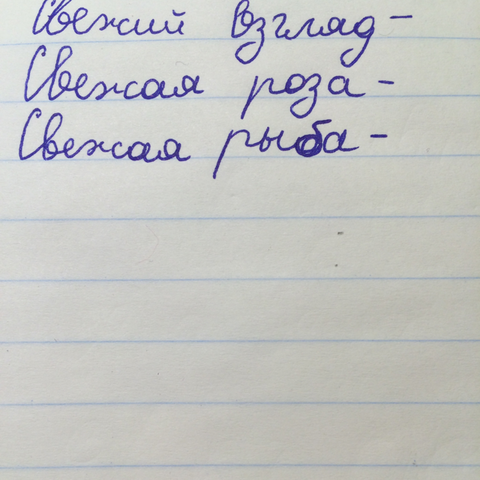 Свежий взгляд -
Свежая роза -
Свежая рыба -